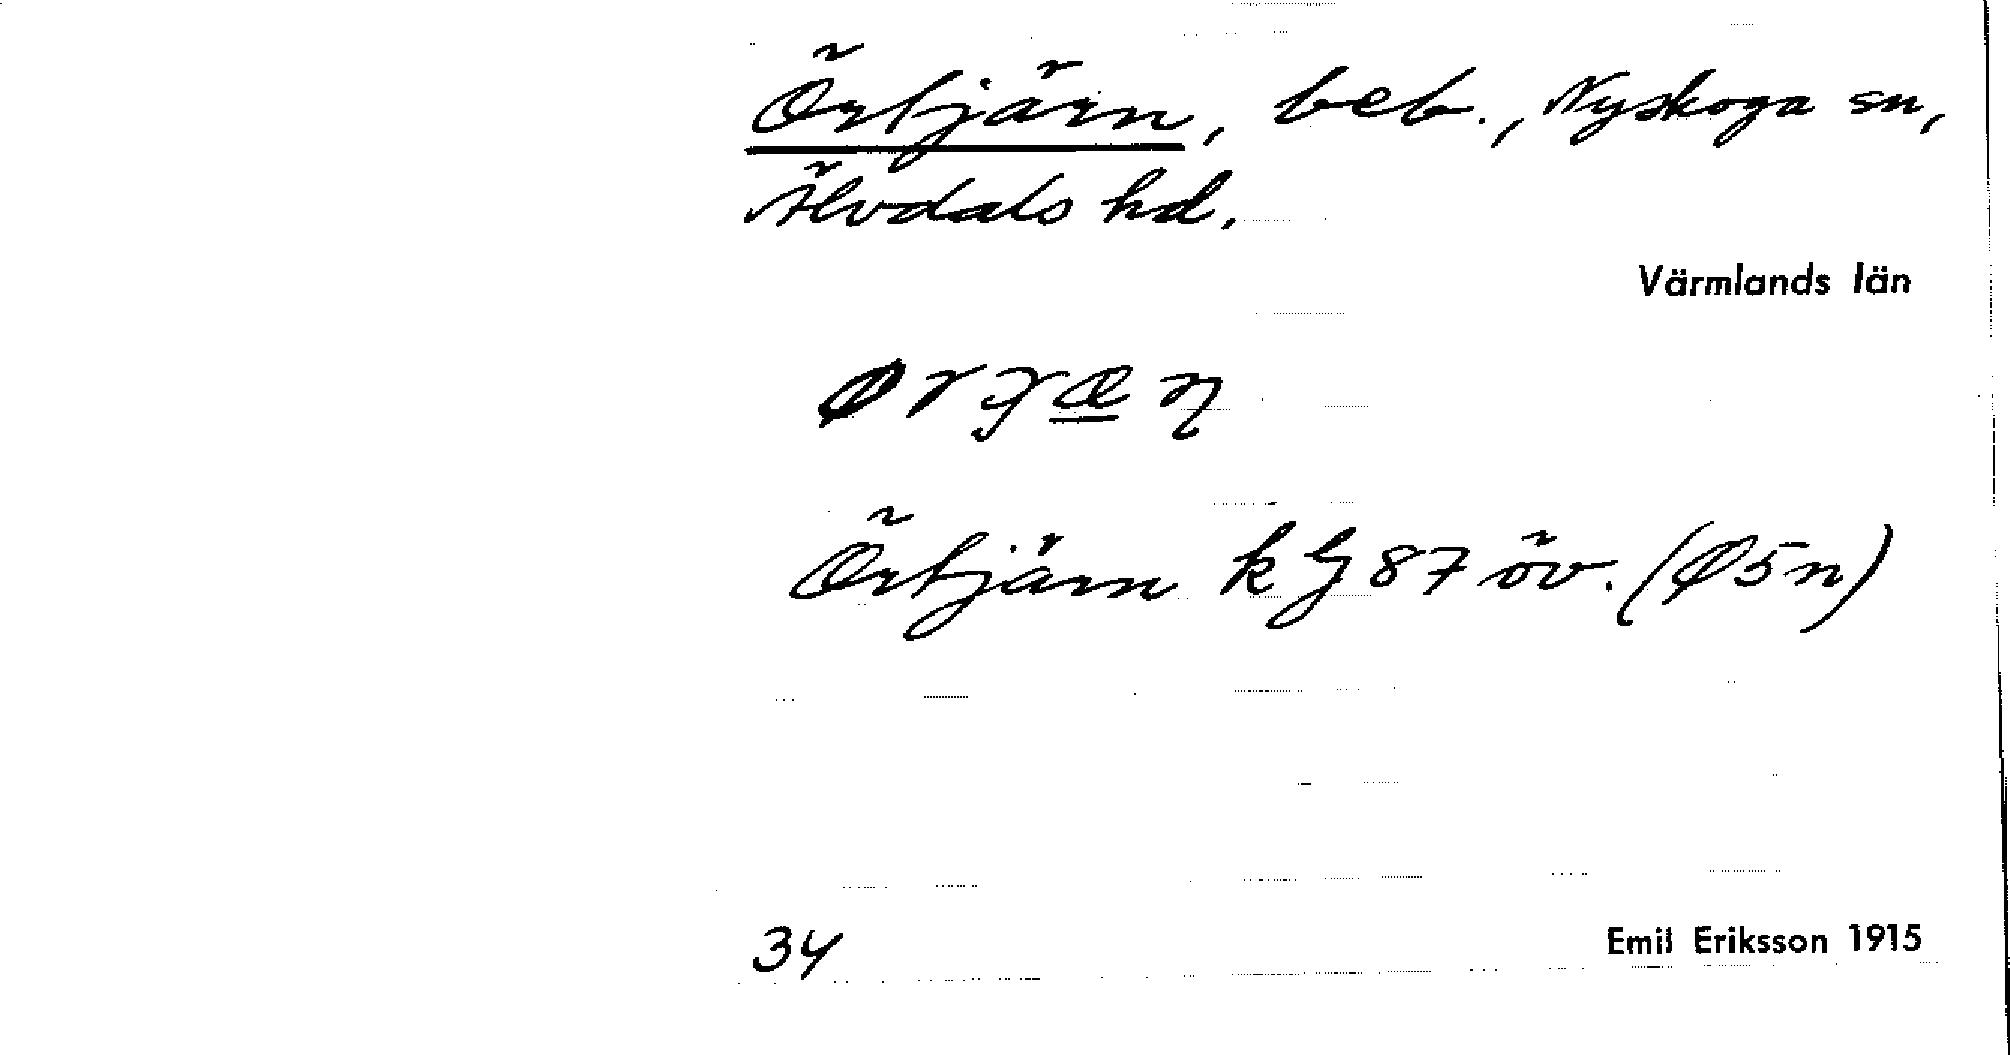 Örtjärn, beb., Nyskoga sn,
Älvdals hd.
Värmlands län
Örtjärn k G 87 öv. (Ø5n)
34
Emil Eriksson 1915